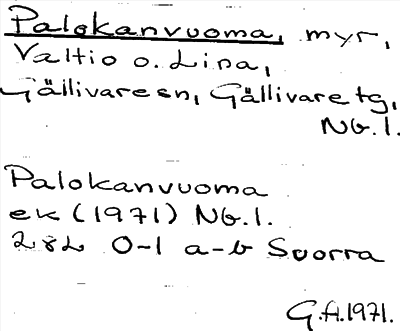 Palokanvuoma, myr,
Valtio o. Lina,
Gällivare sn, Gällivare tg,
Nb. l.
Palokanvuoma
ek (1971) Nb. l.
28L 0-1 a-b Suorra
G.A. 1971.